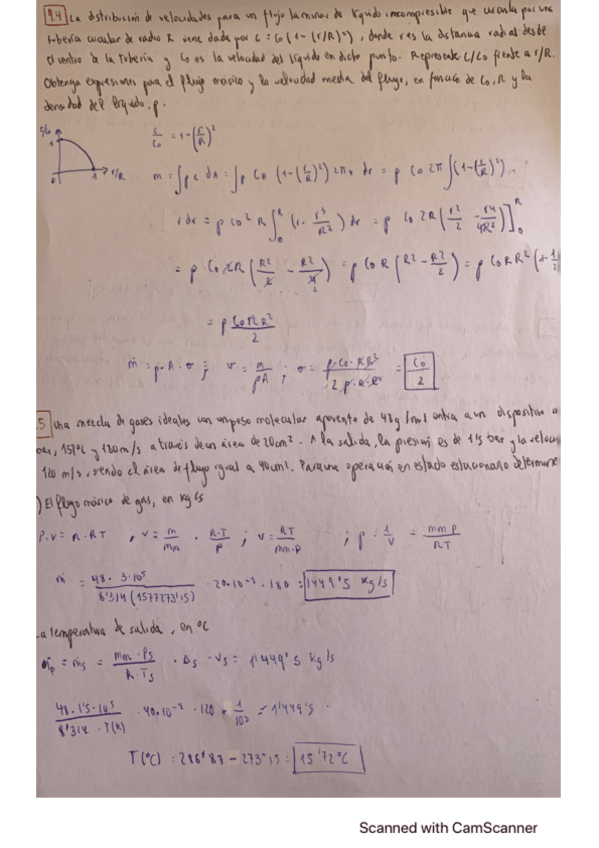 9.4 La distribución de velocidades para un flujo laminar de líquido incompresible que circula por una
tubería circular de radio R viene dada por C = C0 (1 - (r/R)²), donde r es la distancia radial desde
el centro de la tubería y C0 es la velocidad del líquido en dicho punto. Represente C/C0 frente a r/R.
Obtenga expresiones para el flujo másico y la velocidad media del flujo, en función de C0, R y la
densidad del líquido, ρ.
C/C0 1 0 1 r/R
C/C0 = 1 - (r/R)²
m = ∫ρ C dA = ∫ρ C0 (1 - (r/R)²) 2πr dr = ρ C0 2π ∫(1 - (r/R)²)
r dr = ρ C0 2π ∫0 R (r - r³/R²) dr = ρ C0 2π (r²/2 - r⁴/4R²)]0 R
= ρ C0 2π (R²/2 - R²/4) = ρ C0 π (R² - R²/2) = ρ C0 π R² (1 - 1/2
= ρ C0 π R²/2
ṁ = ρ·A·v ; v = m/ρA ; v = ρ·C0·πR²/2ρ·π·R² = C0/2
.5 Una mezcla de gases ideales con un peso molecular aparente de 48 g/mol entra a un dispositivo a
bar, 157ºC y 180 m/s a través de un área de 20 cm². A la salida, la presión es de 1'5 bar y la veloci
120 m/s, siendo el área de flujo igual a 40 cm². Para una operación en estado estacionario determine
) El flujo másico de gas, en kg/s
P·V = n·RT , v = m/Mm · R·T/P ; v = RT/mm·P ; ρ = 1/v = mm P/RT
ṁ = 48·3·10⁵/8'314 (157+273'15) · 20·10⁻⁴ · 180 = 1449'5 kg/s
La temperatura de salida, en ºC
ṁe = ṁs = Mm·Ps/R·Ts · As · vs = 1'449'5 kg/s
48·1'5·10⁵/8'314·T(K) · 40·10⁻⁴ · 120 · 1/10³ = 1'449'5
T(ºC) = 286'87 - 273'15 = 15'72ºC
Scanned with CamScanner